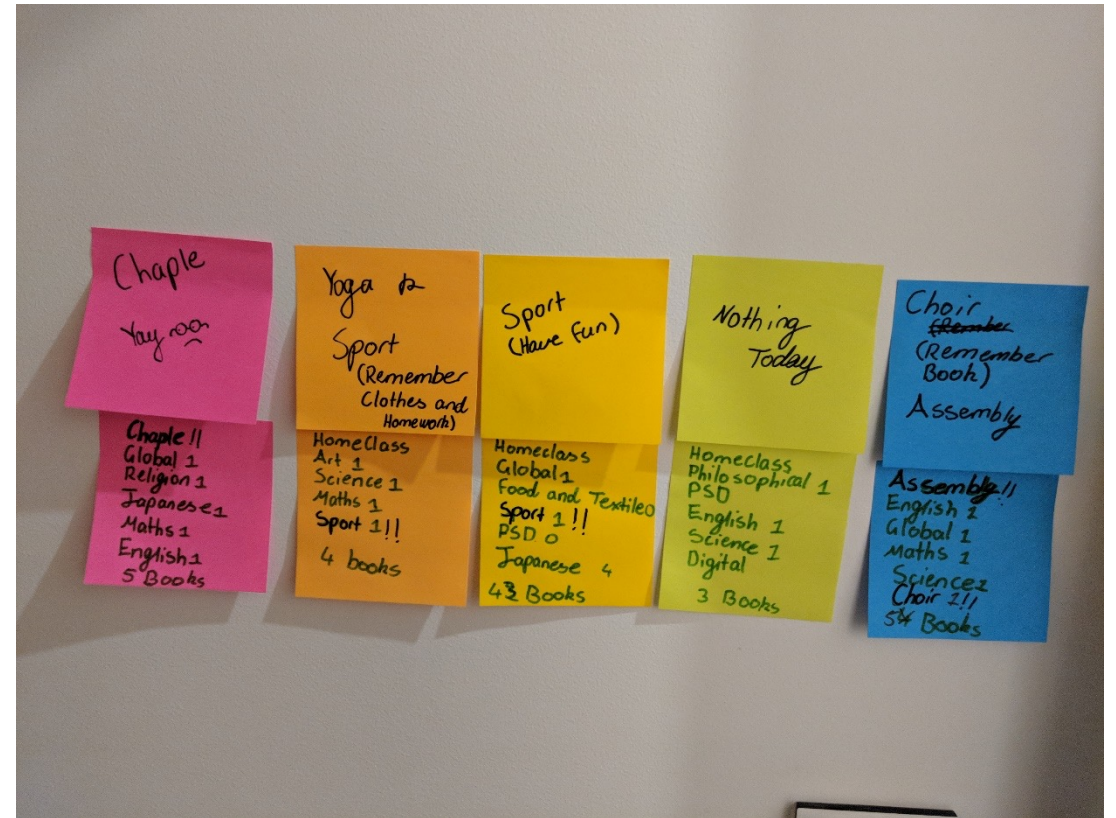 Chaple
Yay
Chaple !!
Global 1
Religion 1
Japanese 1
Maths 1
English 1
5 Books
Yoga
Sport
(Remember
Clothes and
Homework)
HomeClass
Art 1
Science 1
Maths 1
Sport 1!!
4 books
Sport
(Have fun)
Homeclass
Global 1
Food and Textile 0
Sport 1!!
PSD 0
Japanese 4
4 Books
Nothing
Today
Homeclass
Philosophical 1
PSD
English 1
Science 1
Digital
3 Books
Choir
(Remember
Book)
Assembly
Assembly!!
English 1
Global 1
Maths 1
Science 1
Choir 1!!
5 Books